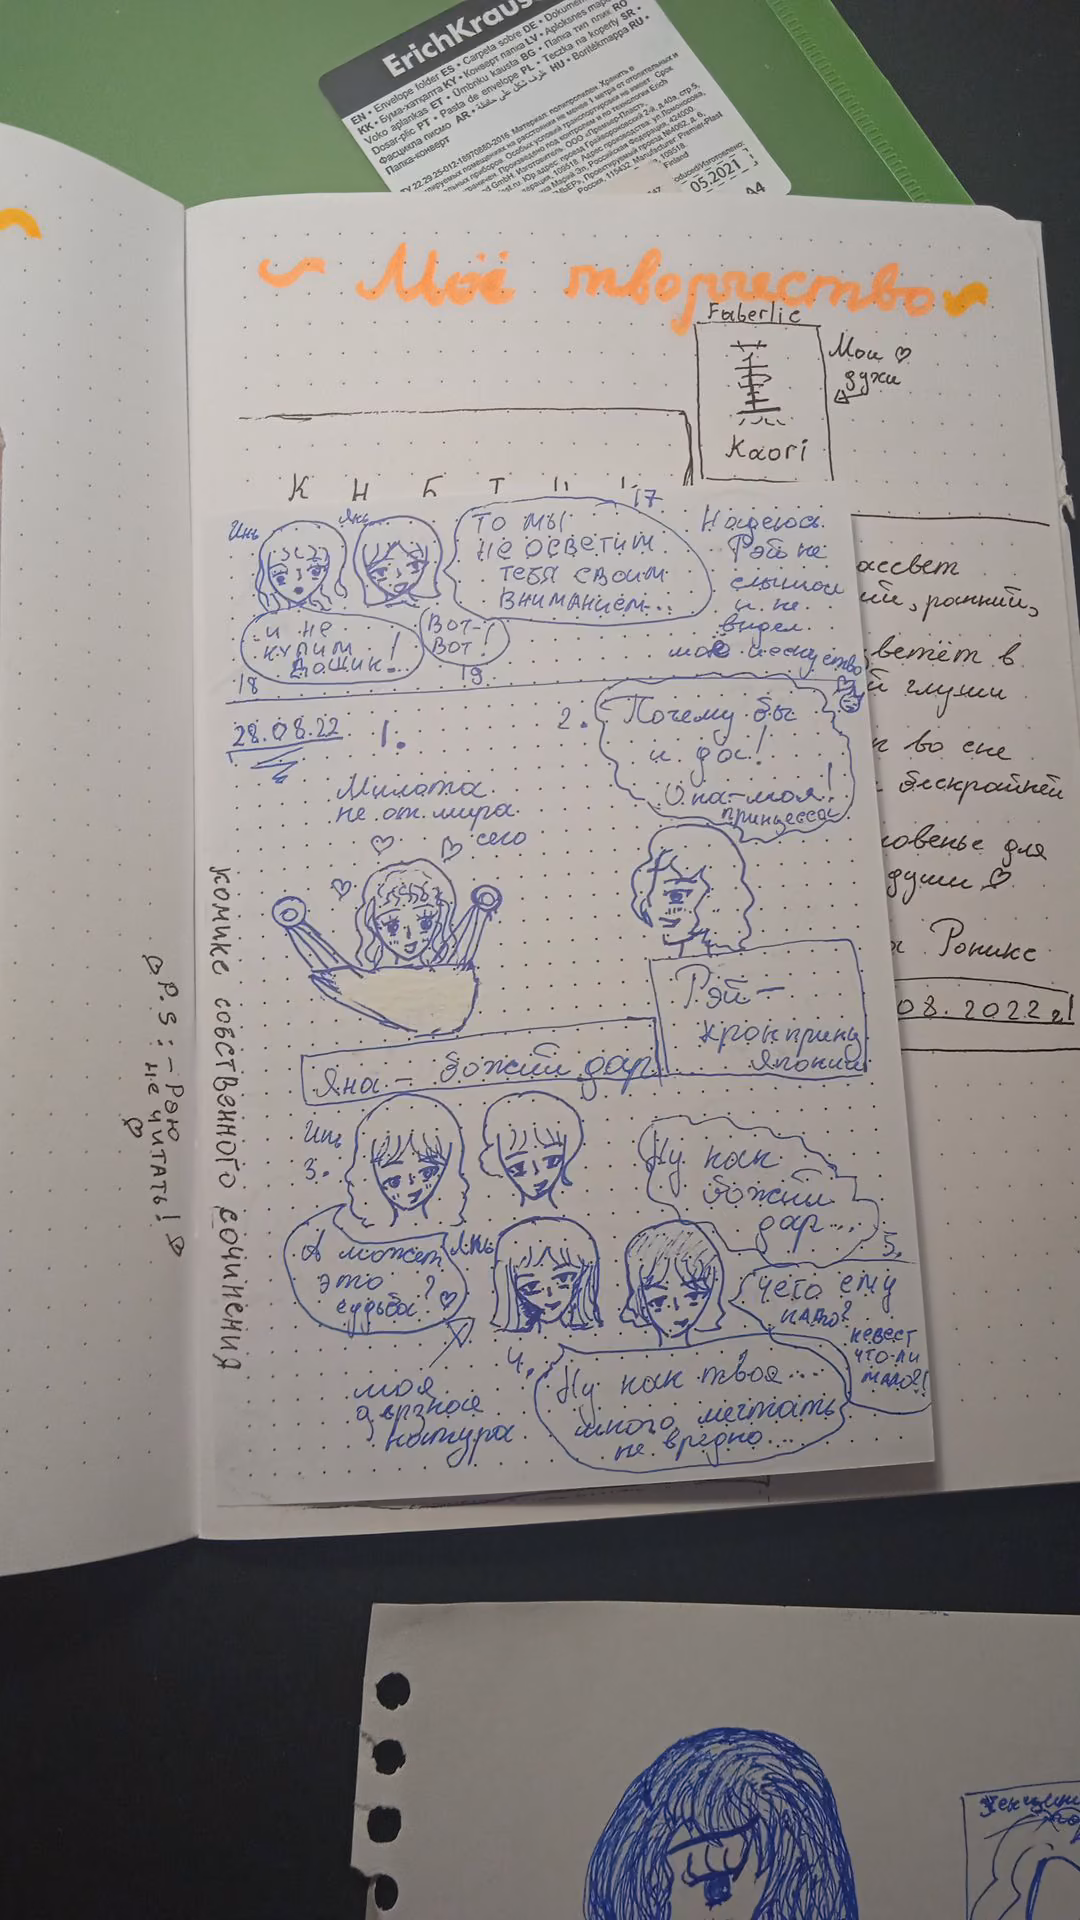 ErichKrause
EN • Envelope folder ES • Carpeta sobre DE • Dokumen
KK • Бума-хатқапта KY • Конверт папка LV • Aploksnes mapa
Voko aplankas ET • Ümbriku kausta BG • Папка тип плик RO
Dosar-plic PT • Pasta de envelope PL • Teczka na koperty SR •
Фасцикла писмо AR • HU • Borítékmappa RU •
Папка-конверт
05.2021
A4
~ Моё творчество ~
Faberlic
Мои ♡
духи
Kaori
К Н Б Т
17
Инь
Янь
ТО МЫ
НЕ ОСВЕТИМ
ТЕБЯ СВОИМ
ВНИМАНИЕМ...
Надеюсь
Рэй не
слышал
и не
видел
моё искусство
..и не
купим
дошик!
ВОТ-!
ВОТ
18
19
28.08.22
1.
Милота
не от мира
сего
2.
Почему бы
и да!
Она-моя!
принцесса
Рэй —
кронпринц
Японии
Яна — божий дар
Инь
3.
А может
это
судьба?
♡
Янь
Ну как
божий
дар...
5.
чего ему
надо?
невест
что-ли
мало?!
4.
моя
дерзкая
натура
Ну как твоя....
много мечтать
не вредно...
комикс собственного сочинения
P.S: - Рэю
не читать!
ассвет
ий, ранний,
ветёт в
й глуши
к во сне
бескрайней
новенье для
души ♡
а Роникс
08.2022г!
Женщина